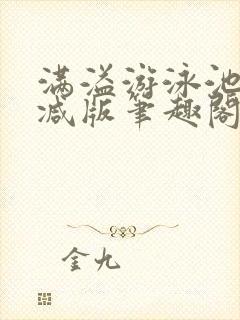 满溢游泳池
减版笔趣阁
金九